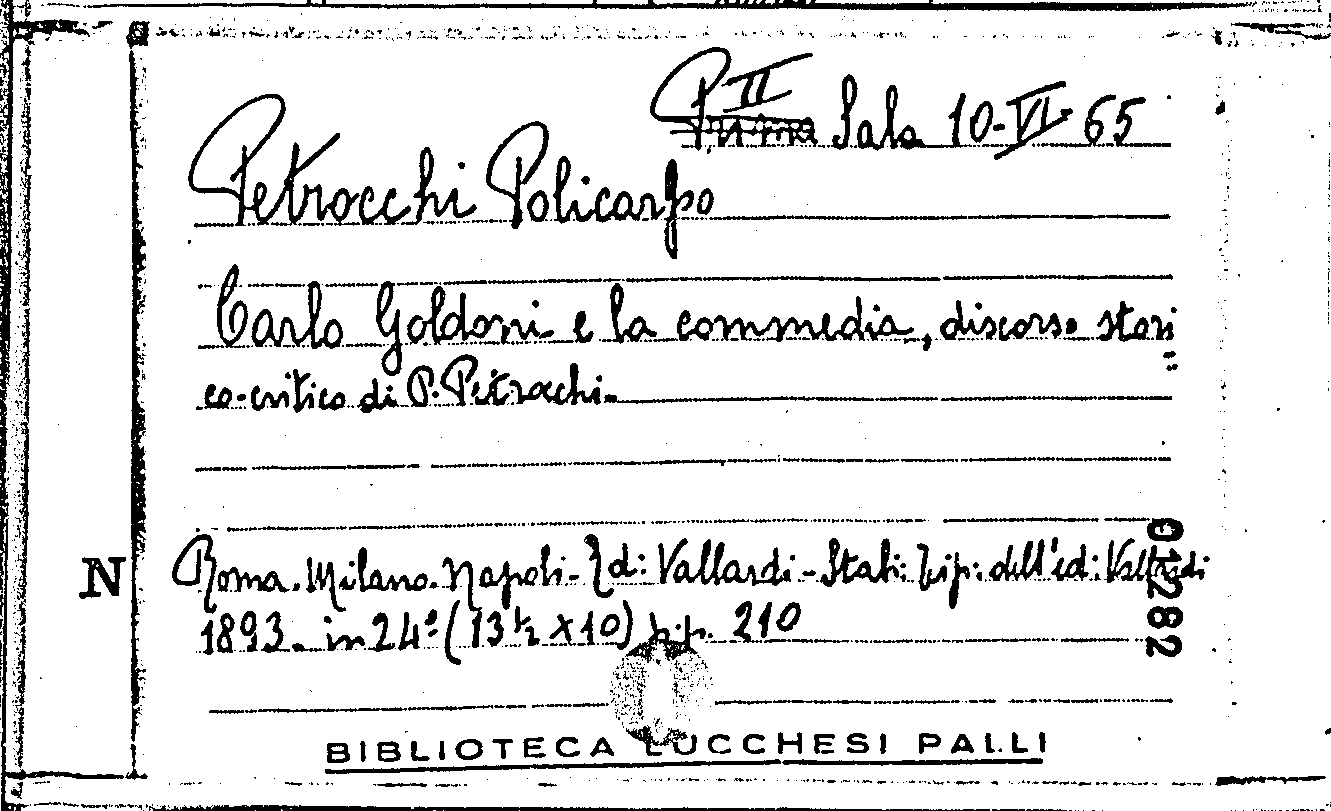 II
Prima Sala 10-VI-65
Petrocchi Policarpo
Carlo Goldoni e la commedia, discorso stori
co-critico di P. Petrocchi.
N
Roma. Milano. Napoli - Ed: Vallardi - Stab: tip: dell'ed: Vallardi
1893. in 24º (13 ½ X 10) p.p. 210
012282
BIBLIOTECA LUCCHESI PALLI